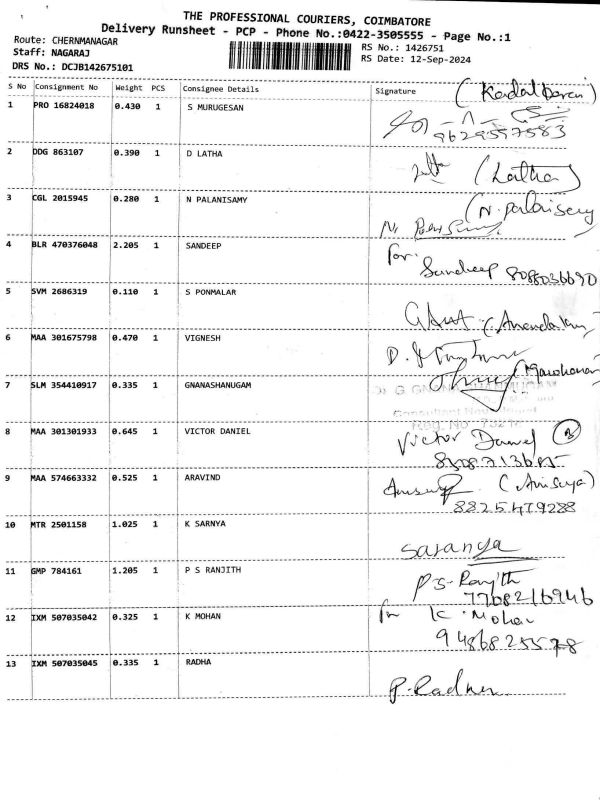 THE PROFESSIONAL COURIERS, COIMBATORE
Delivery Runsheet - PCP - Phone No.:0422-3505555 - Page No.:1
Route: CHERNMANAGAR
RS No.: 1426751
Staff: NAGARAJ
RS Date: 12-Sep-2024
DRS No.: DCJB142675101
S No Consignment No Weight PCS Consignee Details Signature
1 PRO 16824018 0.430 1 S MURUGESAN
9629597583
2 DDG 863107 0.390 1 D LATHA
(Latha)
3 CGL 2015945 0.280 1 N PALANISAMY
(N. Palaisamy
4 BLR 470376048 2.205 1 SANDEEP
for
Sandeep 8088036690
5 SVM 2686319 0.110 1 S PONMALAR
6 MAA 301675798 0.470 1 VIGNESH
7 SLM 354410917 0.335 1 GNANASHANUGAM
8 MAA 301301933 0.645 1 VICTOR DANIEL
Victor Daniel
9 MAA 574663332 0.525 1 ARAVIND
8825479288
10 MTR 2501158 1.025 1 K SARNYA
Saranya
11 GMP 784161 1.205 1 P S RANJITH
P S- Ranjith
7708216946
12 IXM 507035042 0.325 1 K MOHAN
for K. Mohan
9486825578
13 IXM 507035045 0.335 1 RADHA